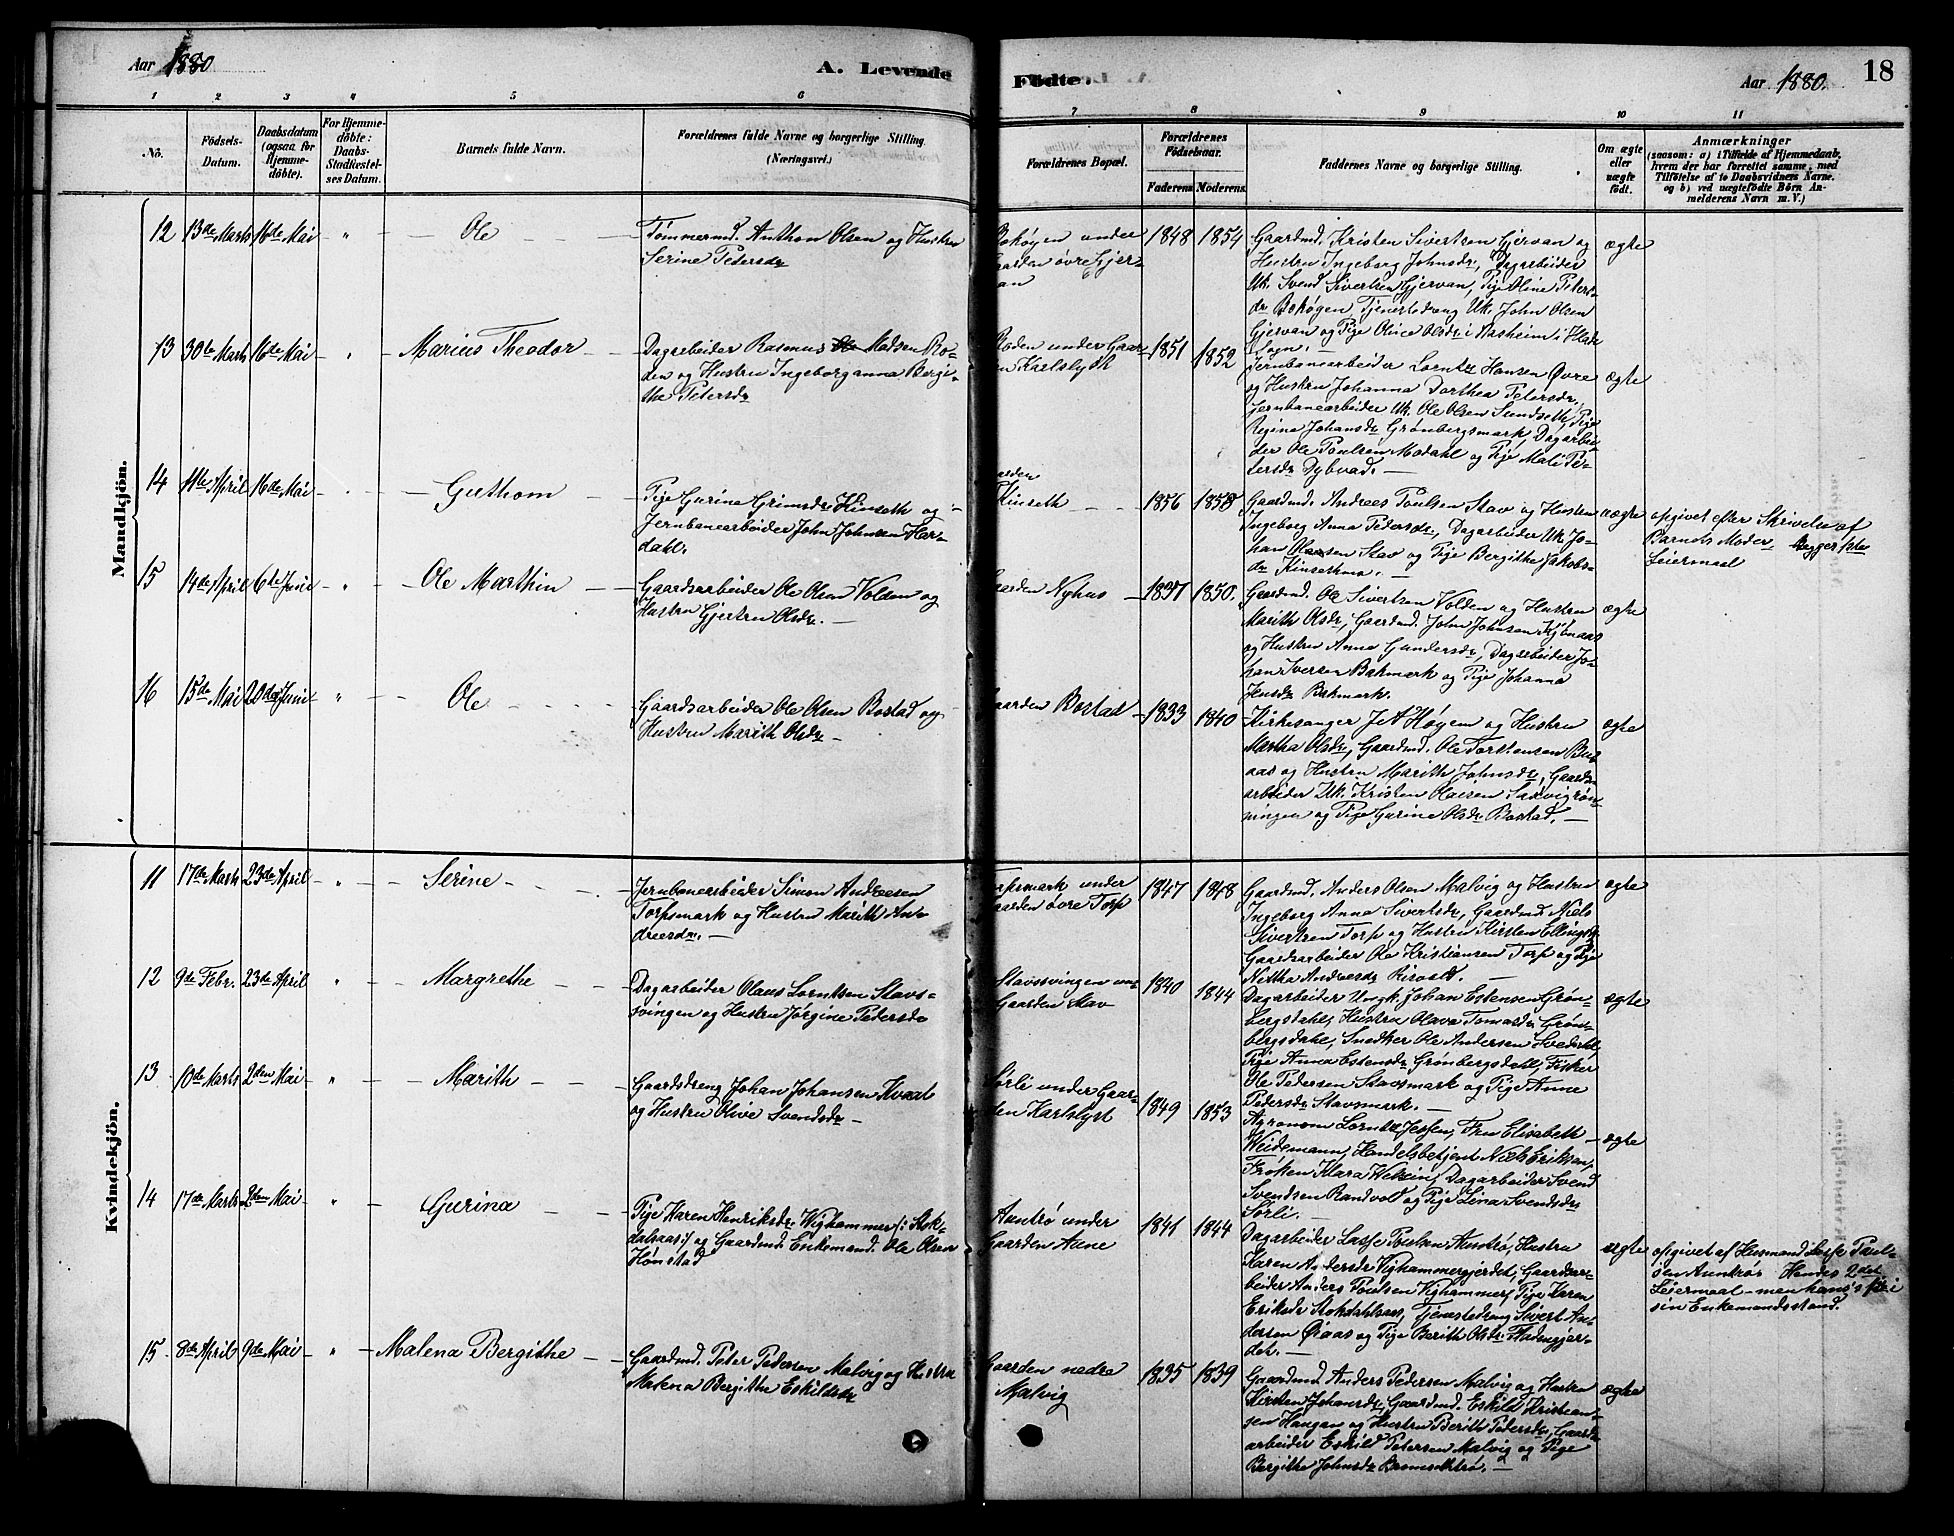 Aar 1880
A. Levende
Födte.
Aar 1880.
18
1 2 3 4 5 6 7 8 9 10 11
No.
Födsels-
Datum.
Daabsdatum
(ogsaa for
Hjemme-
döbte).
For Hjemme-
döbte:
Daabs-
Stadfæstel-
ses Datum.
Barnets fulde Navn.
Forældrenes fulde Navne og borgerlige Stilling.
(Næringsvei.)
Forældrenes Bopæl.
Forældrenes
Födselsaar.
Faderens. Moderens.
Faddernes Navne og borgerlige Stilling.
Om ægte
eller
uægte
födt.
Anmærkninger
(saasom: a) i Tilfælde af Hjemmedaab,
hvem der har forrettet samme, med
Tilföielse af to Daabsvidners Navne,
og b) ved uægtefödte Börn An-
melderens Navn m. V.)
Mandkjön.
12 13de Marts 16de Mai " Ole
Tømmermd. Anthon Olsen og Hustru
Serine Pedersdr
Bohøgen under
Gaarden øvre Gjer-
van
1848 1854
Gaardmd. Kristen Sivertsen Gjervan og
Hustru Ingeborg Johnsdr, Dagarbeider
Uk. Svend Sivertsen Gjervan, Pige Oline Peters-
dr Bohøgen, Tjenestedreng Uk. John Olsen
Gjervan og Pige Olina Olsdr i Aasheim i Hlade
Sogn. —
ægte
13 30te Marts 16de Mai " Marius Theodor
Dagarbeider Rasmus Madsen Bo-
den og Hustru Ingeborganna Bergi-
the Petersdr
Boden under Gaar-
den Karlslydh
1851 1852
Jernbanearbeider Lorntz Hansen Øvre
og Hustru Johanna Dorthea Petersdr,
Jernbanearbeider Uk. Ole Olsen Sundseth, Pige
Regina Johansdr Grønbergsmark, Dagarbei-
der Ole Poulsen Modahl og Pige Mali Pe-
tersdr Dybvad. —
ægte
14 4de April 16de Mai " Guthom
Pige Gurina Grimsdr Kinseth og
Jernbanearbeider John Johnsen Har-
dahl.
Gaarden
Kinseth
1856 1858
Gaardmd. Andreas Poulsen Stav og Hustru
Ingeborg Anna Pedersdr, Dagarbeider Uk. Jo-
han Olausen Stav og Pige Bergitthe Jakobs-
dr Kinsethmo. —
uægte
opgivet efter Skrivelse af
Barnets Moder. Begges 1ste
Leiermaal
15 14de April 6te Juni " Ole Marthin
Gaardsarbeider Ole Olsen Volden og
Hustru Gjertru Olsdr. —
Gaarden Nyhus
1837 1850.
Gaardmd. Ole Sivertsen Volden og Hustru
Marith Olsdr, Gaardmd. John Johnsen Kjønaas
og Hustru Anna Gundersdr, Dagarbeider Jo-
han Iversen Bakmark og Pige Johanna
Jensdr Bakmark.
ægte
16 15de Mai 20de Juni " Ole
Gaardsarbeider Ole Olsen Bostad og
Hustru Marith Olsdr —
Gaarden Bostad
1833 1840
Kirkesanger J A Høyem og Hustru
Martha Olsdr, Gaardmd. Ole Torstensen Bus-
aas og Hustru Marith Johnsdr, Gaards-
arbeider Uk. Kristen Olaisen Saxvigrøn-
ningen og Pige Gurine Olsdr Bostad. —
ægte
Kvindekjön.
11 17de Marts 23de April " Serine
Jernbanearbeider Simon Andreasen
Torpsmark og Hustru Marith An-
dreasdr. —
Torpsmark under
Gaarden øvre Torp
1847 1848
Gaardmd. Anders Olsen Malvig og Hustru
Ingeborg Anna Sivertsdr, Gaardmd. Niels
Sivertsen Torp og Hustru Kirsten Ellingsdr
Gaardsarbeider Ole Kristiansen Torp og Pige
Andreasdr —
ægte
12 9de Febr. 23de April " Margrethe
Dagarbeider Olaus Lorntsen Stavs-
svingen og Hustru Jørgine Pedersdr
Stavssvingen un-
Gaarden Stav
1840 1844
Dagarbeider Ungk. Johan Estensen Grøn-
bergsdahl, Hustru Olava Tomasdr Grøn-
bergsdahl, Snedker Ole Andersen Svedahl,
Pige Anna Estensdr Grønbergsdahl, Fisker
Ole Pedersen Stavsmark og Pige Anne
Pedersdr Stavsmark. —
ægte
13 10de Marts 2den Mai " Marith
Gaardsdreng Johan Johansen Kvaal
og Hustru Olive Svendsdr —
Sørli under Gaar-
den Karlslyst
1849 1853
Agronom Lorntz Jessen, Fru Elisabeth
Weidemann, Handelsbetjent Niels Eriksen,
Frøken Klara Dagarbeider Svend
Svendsen Randvold og Pige Lina Svendsdr
Sørli. —
ægte
14 17de Marts 2den Mai " Gurina
Pige Karen Henriksdr Vighammer (: i Stok-
dalsaas:) og Gaardmd. Enkemand. Ole Olsen
Hønstad
Auntrø under
Gaarden Aune
1841 1844
Dagarbeider Lasse Poulsen Auntrø, Hustru
Karen Andersdr Vighammergjerdet, Gaardsar-
beider Anders Poulsen Vighammer, Pige Karen
Eriksdr Stokdahlsaas, Tjenestedreng Sivert An-
dersen Øiaas og Pige Berith Olsdr Stadengjer-
det. —
uægte
opgivet af Husmand Lasse Poul-
sen Auntrø. Hendes 2det
Leiermaal – men hans 1ste i
sin Enkemandsstand.
15 8de April 9de Mai " Malena Bergithe
Gaardmd. Peter Pedersen Malvig og Hustru
Malena Bergithe Eskildsdr
Gaarden nedre
Malvig
1835 1839
Gaardmd. Anders Pedersen Malvig og Hustru
Kirsten Johansdr, Gaardmd. Eskild Kristian-
sen Haugan og Hustru Berith Pedersdr, Gaards-
arbeider Eskild Petersen Malvig og Pige
Bergitha Johnsdr Bromsethtrø. —
ægte